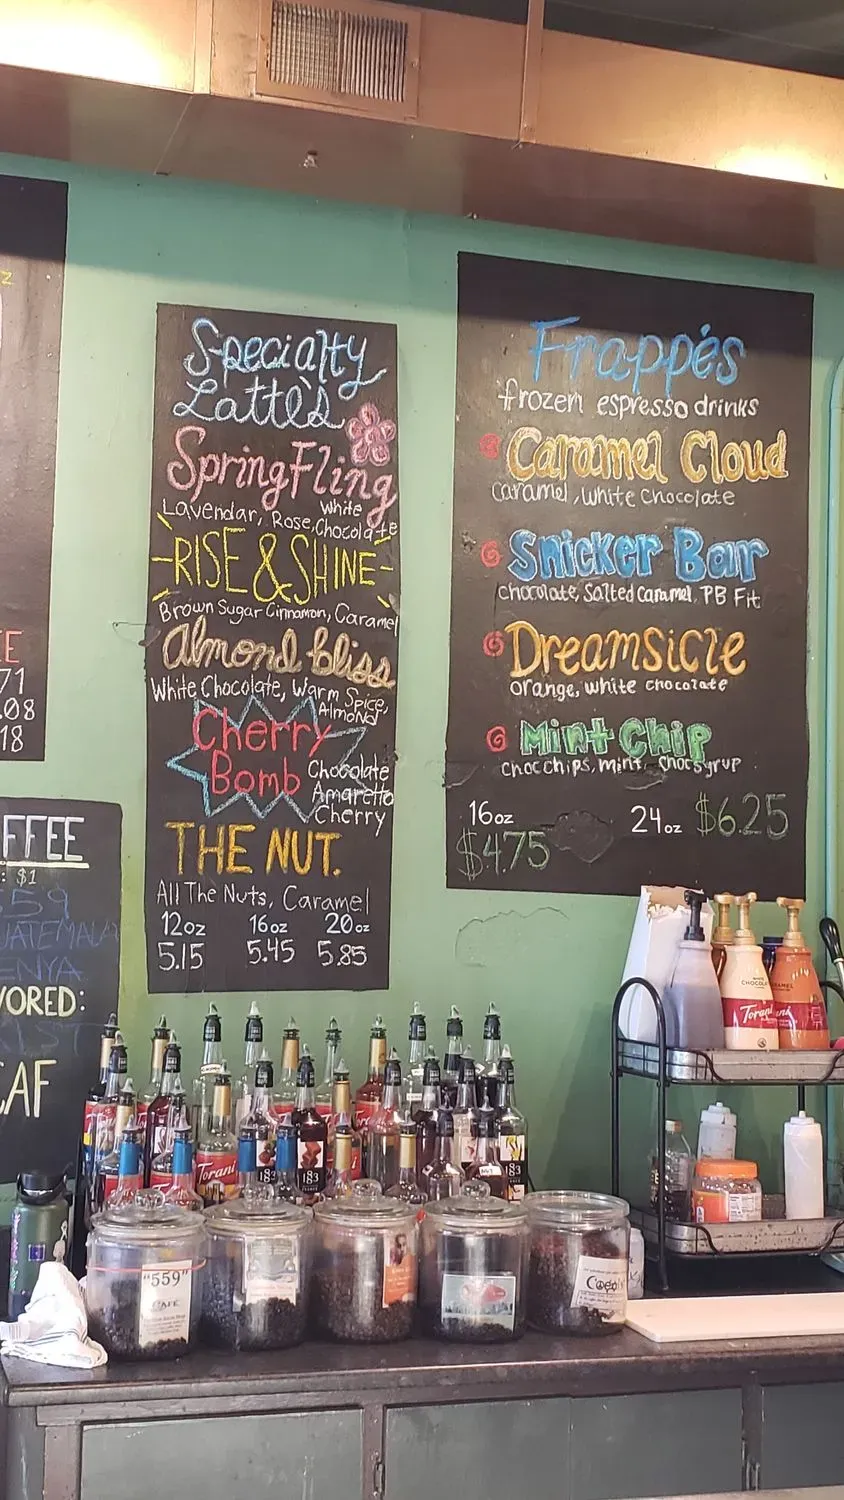 Specialty
Latte's
Spring Fling
Lavendar, Rose, White
Chocolate
RISE & SHINE
Brown Sugar Cinnamon, Caramel
Almond bliss
White Chocolate, Warm Spice,
Almond
Cherry
Bomb
Chocolate
Amaretto
Cherry
THE NUT.
All The Nuts, Caramel
12oz 16oz 20oz
5.15 5.45 5.85
Frappés
frozen espresso drinks
Caramel Cloud
caramel, white chocolate
Snicker Bar
chocolate, Salted Caramel, PB Fit
Dreamsicle
orange, white chocolate
Mint Chip
choc chips, mint, choc syrup
16oz 24oz $6.25
$4.75
E
71
.08
18
FFEE
: $1
59
UATEMALA
ENYA
VORED:
CAF
Torani
Torani
183
183
183
"559"
CAFE
WHITE
CHOCOL